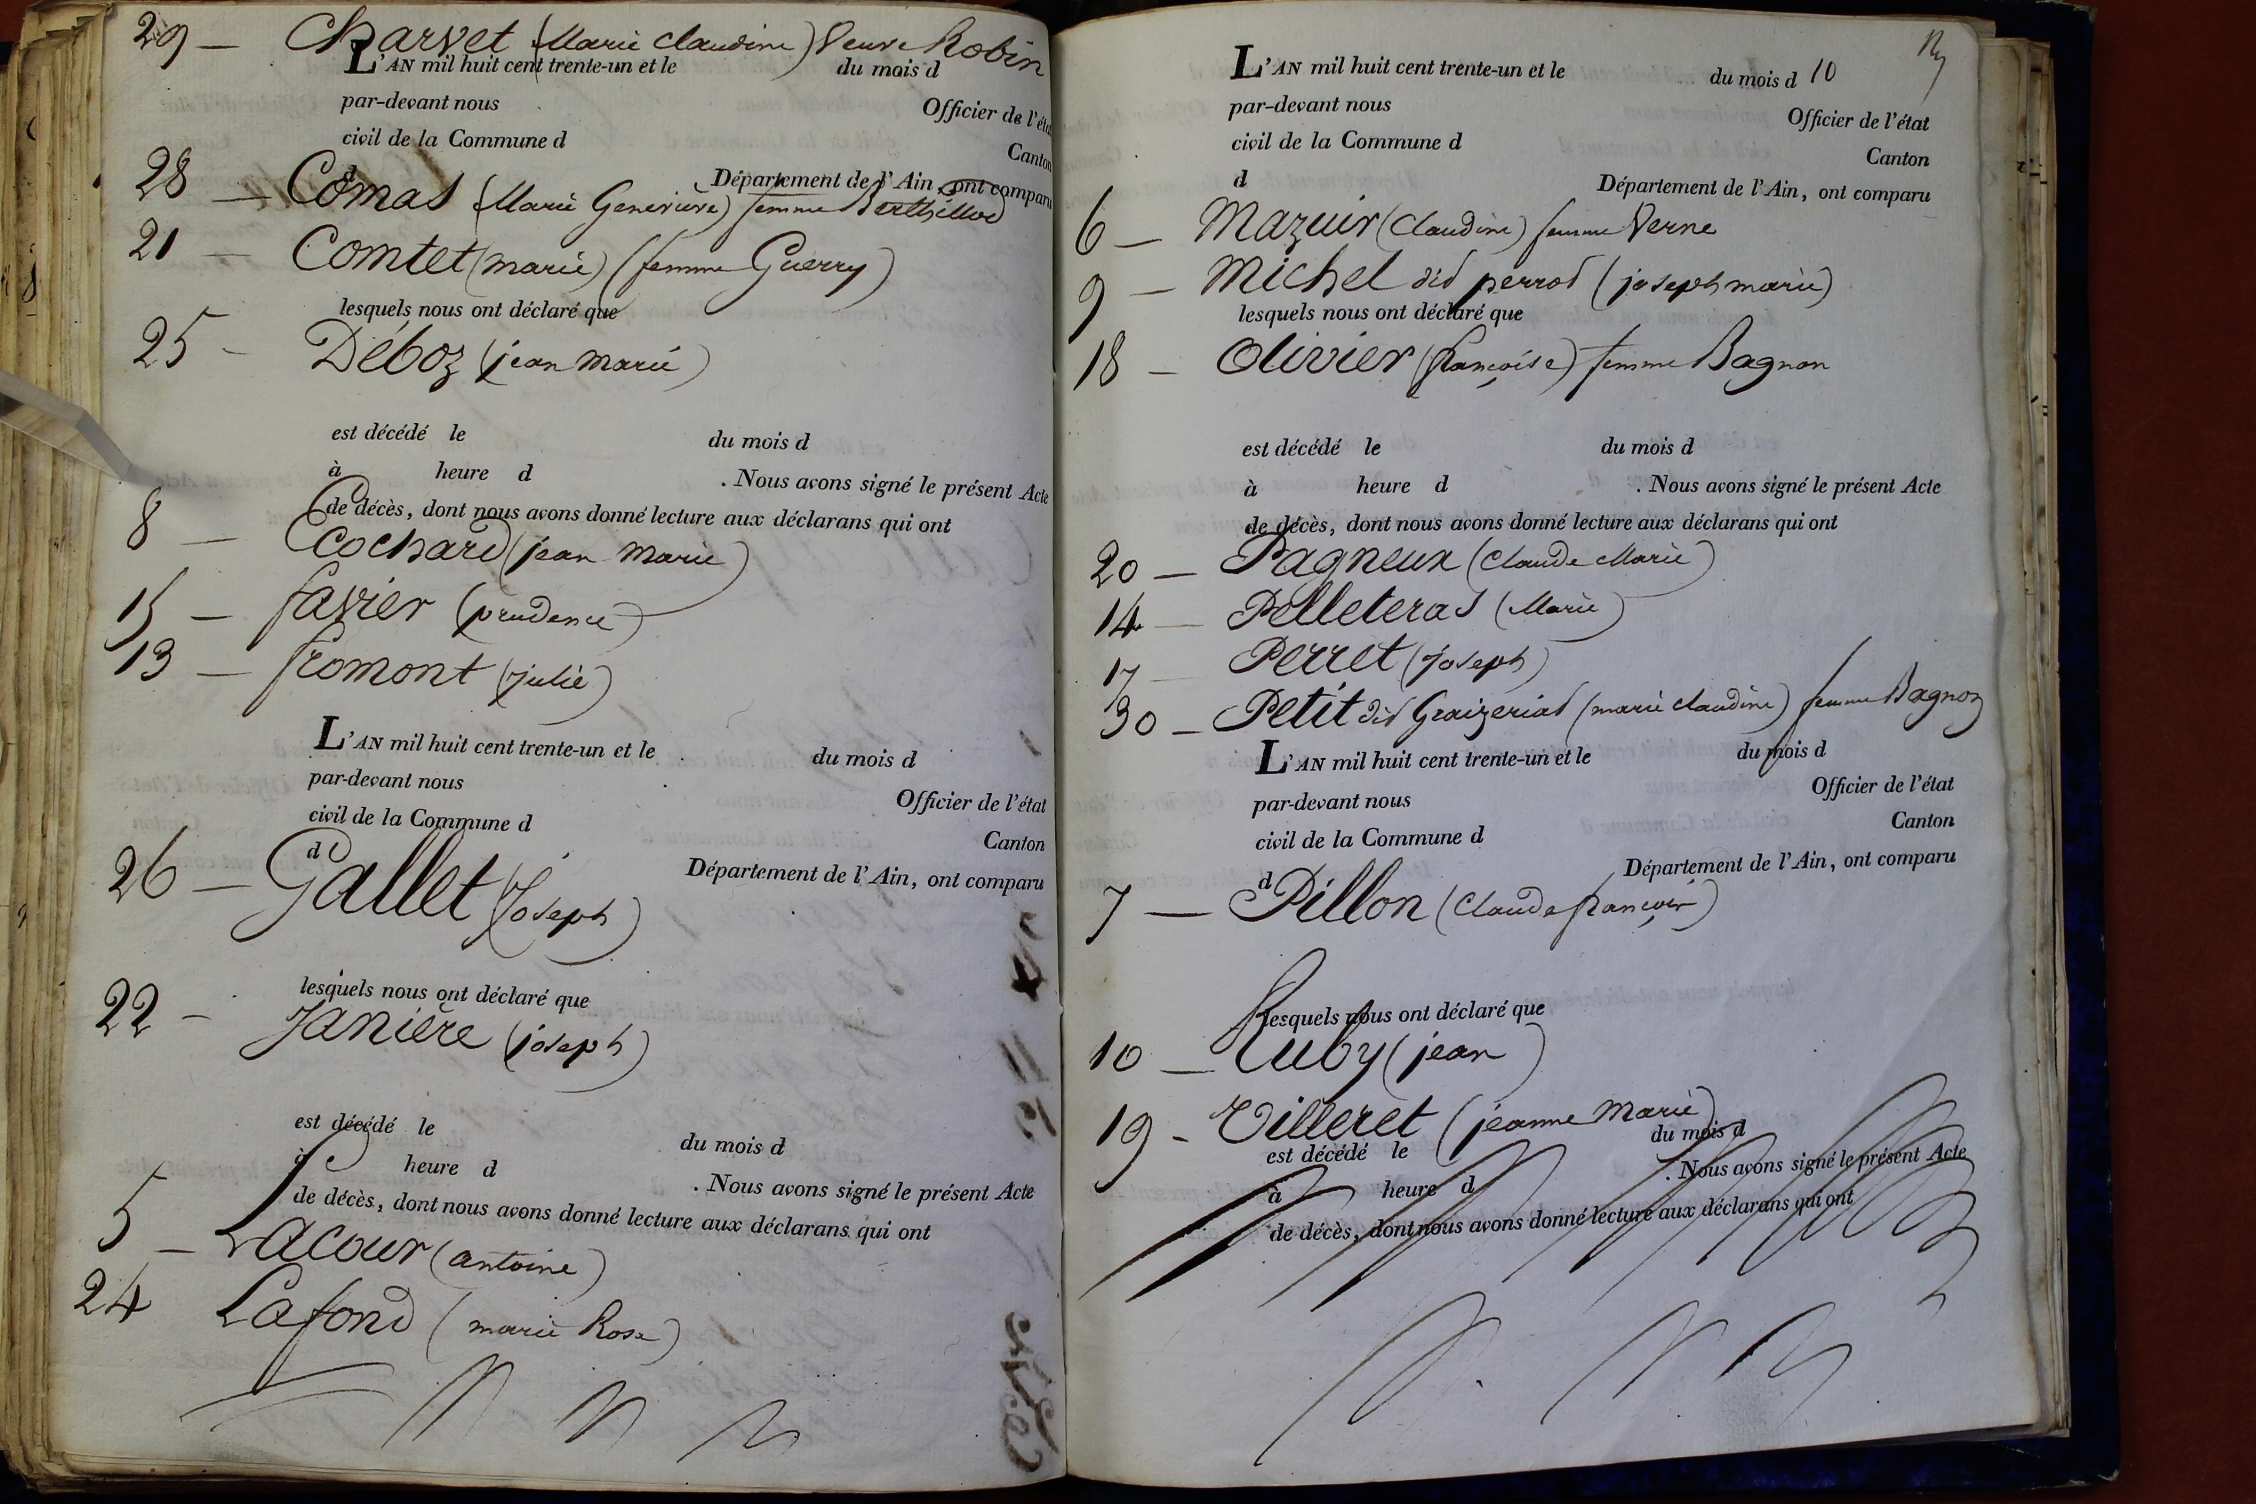 29 — Charvet (Marie Claudine) Veuve Robin
L'AN mil huit cent trente-un et le du mois d
par-devant nous Officier de l'état
civil de la Commune d Canton
d Département de l'Ain, ont comparu
28 — Comas (Marie Geneviève) femme Berthillod
21 — Comtet (marie) (femme Guerry)
lesquels nous ont déclaré que
25 - Déboz (jean marie)
est décédé le du mois d
à heure d . Nous avons signé le présent Acte
de décès, dont nous avons donné lecture aux déclarans qui ont
8 — Ecochard (jean marie)
15 — favier (prudence)
13 — fromont (julie)
L'AN mil huit cent trente-un et le du mois d
par-devant nous Officier de l'état
civil de la Commune d Canton
d Département de l'Ain, ont comparu
26 — Gallet (Joseph)
lesquels nous ont déclaré que
22 - Janière (joseph)
est décédé le du mois d
à heure d . Nous avons signé le présent Acte
de décès, dont nous avons donné lecture aux déclarans qui ont
5 — Lacour (antoine)
24 Lafond (marie Rose)
L'AN mil huit cent trente-un et le du mois d 10
par-devant nous Officier de l'état
civil de la Commune d Canton
d Département de l'Ain, ont comparu
6 — Mazuir (Claudine) femme Verne
9 — Michel dit perrod (joseph marie)
lesquels nous ont déclaré que
18 — Olivier (françoise) femme Bagnon
est décédé le du mois d
à heure d . Nous avons signé le présent Acte
de décès, dont nous avons donné lecture aux déclarans qui ont
20 — Pagneux (Claude Marie)
14 — Pelleteras (Marie)
17 — Perret (Joseph)
30 — Petit dit Graizeriat (marie claudine) femme Bagnon
L'AN mil huit cent trente-un et le du mois d
par-devant nous Officier de l'état
civil de la Commune d Canton
d Département de l'Ain, ont comparu
7 — Pillon (Claude françois)
lesquels nous ont déclaré que
10 — Ruby (jean)
19 - Villeret (jeanne Marie)
est décédé le du mois d
à heure d . Nous avons signé le présent Acte
de décès, dont nous avons donné lecture aux déclarans qui ont